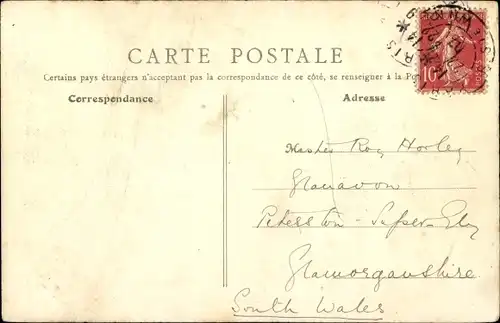 CARTE POSTALE
Certains pays étrangers n'acceptant pas la correspondance de ce côté, se renseigner à la
Correspondance
Adresse
10
Master Roy Horley
Glanavon
Peterston-Super-Ely
Glamorganshire
South Wales